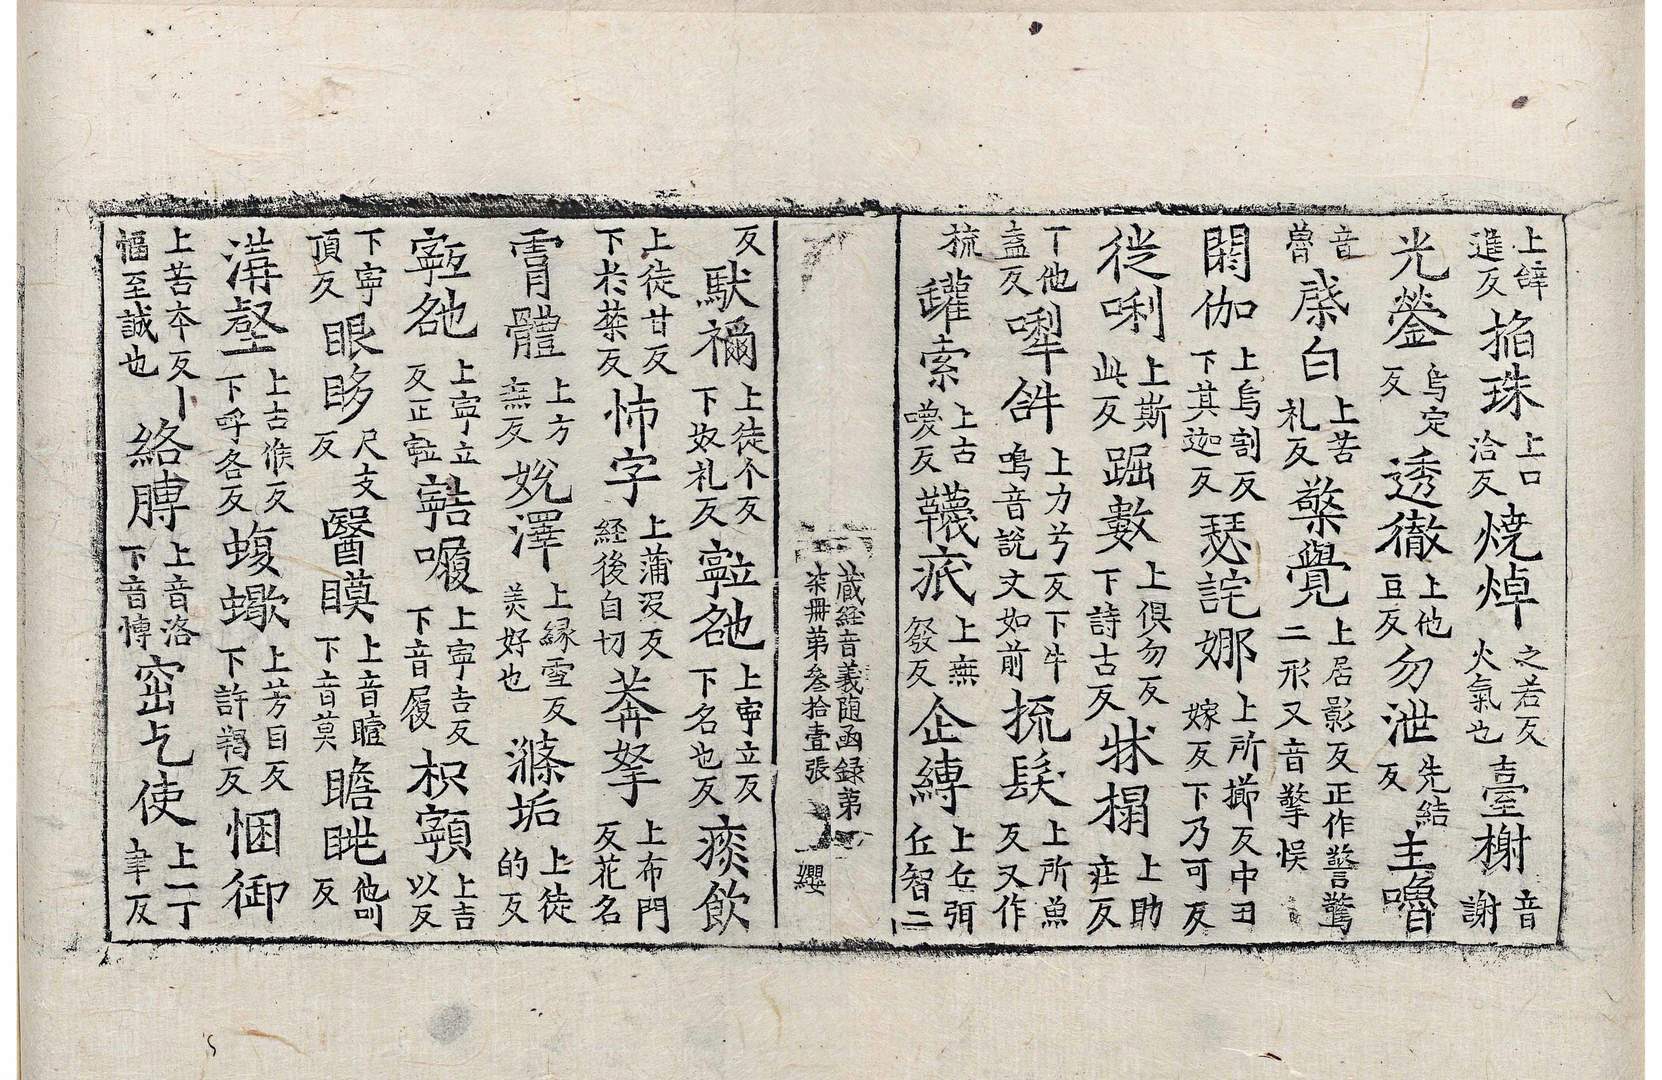 上辝進反掐珠上口洽反燒焯之若反火氣也臺榭音謝
光鎣烏定反透徹上他豆反勿泄先結反主嚕
音魯棨白上苦礼反檠覺上居影反正作警驚二形又音擎悮
閼伽上烏割反下其迦反瑟詫娜上所擳反中丑嫁反下乃可反
徙唎上斯此反踞數上俱勿反下詩古反牀榻上助庄反
丁他盍反㗚吽上力兮反下牛鳴音說文如前梳髮上所魚反又作
梳䍜索上古嘜反韈疷上無發反企縛上丘弭丘智二
藏經音義隨函録第
柒冊第叄拾壹張 纓
反馱禰上徒个反下奴礼反𪧀㰯上寧立反下名也反痰飲
上徒甘反下於禁反怖字上蒲没反経後自切莾拏上布門反花名
霄體上方無反娧澤上縁雪反美好也滌垢上徒的反
𪧀㰯上寧立反正𪧀嚔上寧吉反下音履枳上吉以反
下寧頂反眼眵尺支反瞖瞙上音瞖下音莫瞻眺他叫反
溝壑上古侯反下呼各反蝮蠍上芳目反下許羯反悃御
上苦本反丨愊至誠也絡膊上音洛下音博窋乞使上丁聿反